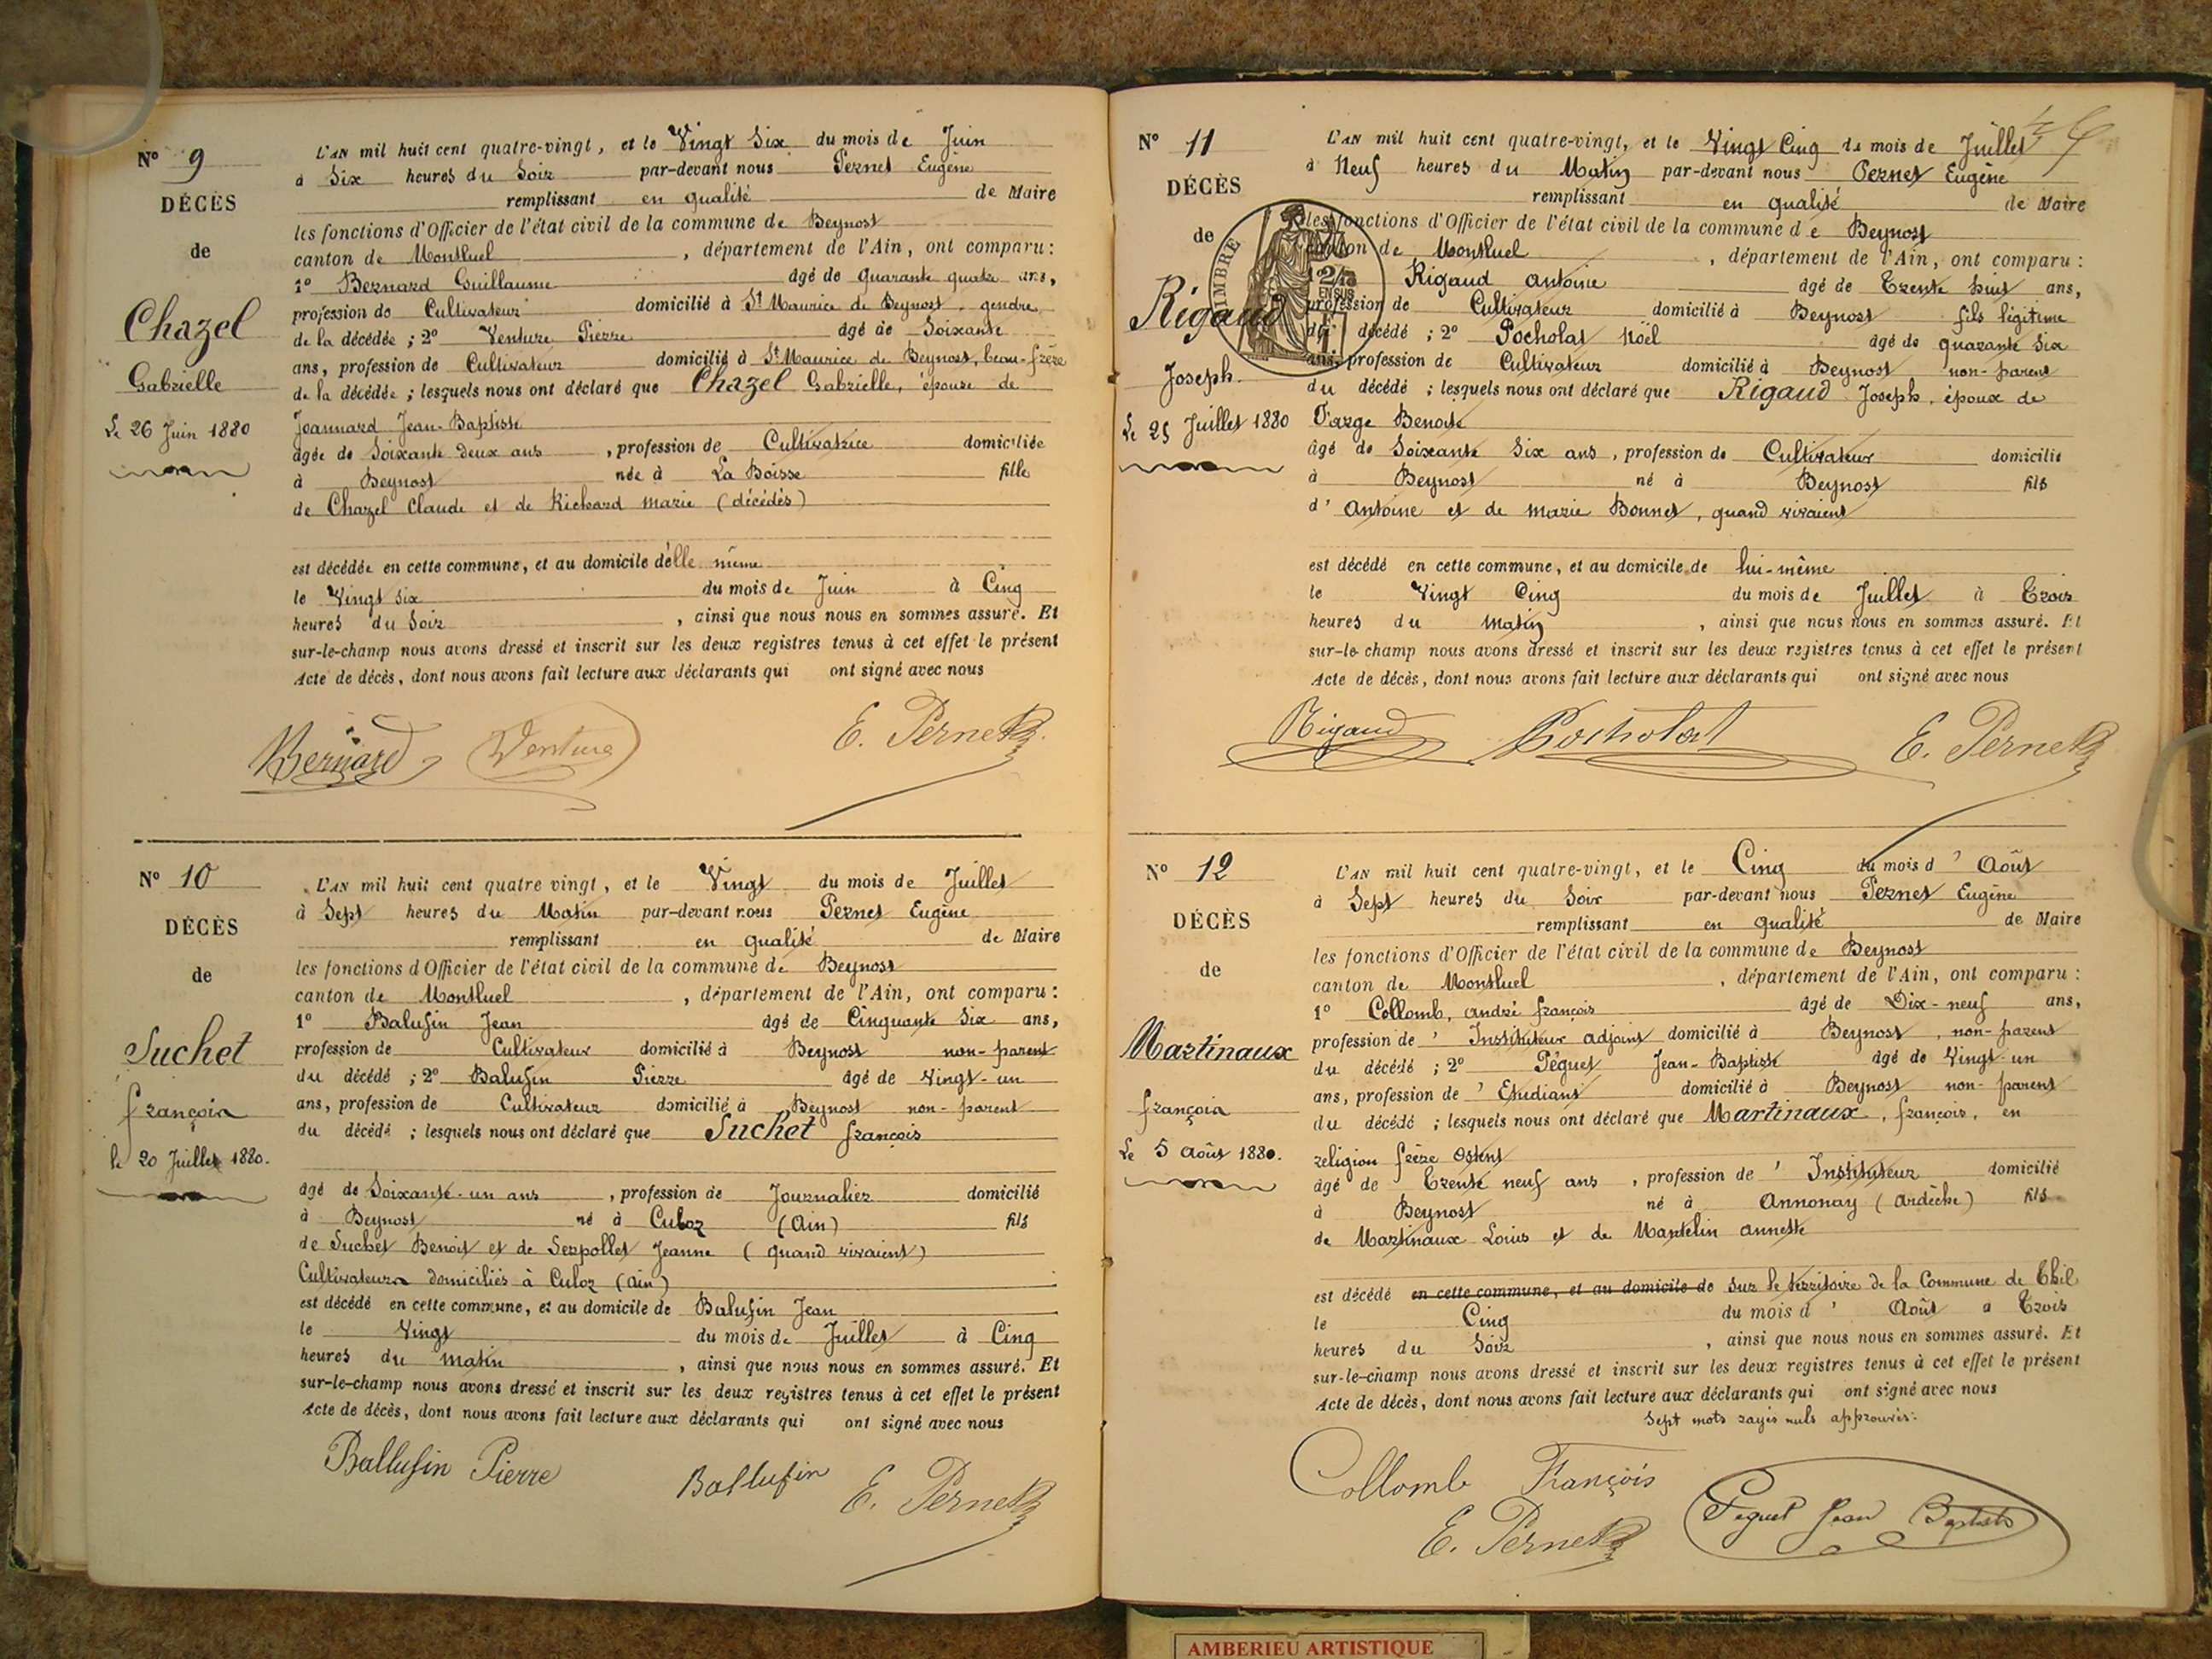 N° 9
DÉCÈS
de
Chazel
Gabrielle
Le 26 Juin 1880
L'AN mil huit cent quatre-vingt, et le Vingt Six du mois de Juin
à Six heures du Soir par-devant nous Pernet Eugène
remplissant en qualité de Maire
les fonctions d'Officier de l'état civil de la commune de Beynost
canton de Montluel, département de l'Ain, ont comparu :
1° Bernard Guillaume âgé de quarante quatre ans,
profession de Cultivateur domicilié à St Maurice de Beynost, gendre
de la décédée ; 2° Venture Pierre âgé de Soixante
ans, profession de Cultivateur domicilié à St Maurice de Beynost, beau-frère
de la décédée ; lesquels nous ont déclaré que Chazel Gabrielle, épouse de
Jeannard Jean-Baptiste
âgée de Soixante deux ans, profession de Cultivatrice domiciliée
à Beynost née à La Boisse fille
de Chazel Claude et de Richard Marie (décédés)
est décédée en cette commune, et au domicile d'elle même
le Vingt Six du mois de Juin à Cinq
heures du Soir, ainsi que nous nous en sommes assuré. Et
sur-le-champ nous avons dressé et inscrit sur les deux registres tenus à cet effet le présent
Acte de décès, dont nous avons fait lecture aux déclarants qui ont signé avec nous
Bernard Venture E. Pernet
N° 10
DÉCÈS
de
Suchet
françois
le 20 Juillet 1880.
L'AN mil huit cent quatre vingt, et le Vingt du mois de Juillet
à Sept heures du Matin par-devant nous Pernet Eugène
remplissant en qualité de Maire
les fonctions d'Officier de l'état civil de la commune de Beynost
canton de Montluel, département de l'Ain, ont comparu :
1° Balufin Jean âgé de Cinquante Six ans,
profession de Cultivateur domicilié à Beynost non-parent
du décédé ; 2° Balufin Pierre âgé de Vingt-un
ans, profession de Cultivateur domicilié à Beynost non-parent
du décédé ; lesquels nous ont déclaré que Suchet françois
âgé de Soixante-un ans, profession de Journalier domicilié
à Beynost né à Culoz (Ain) fils
de Suchet Benoit et de Serpollet Jeanne (quand vivaient)
Cultivateurs domiciliés à Culoz (Ain)
est décédé en cette commune, et au domicile de Balufin Jean
le Vingt du mois de Juillet à Cinq
heures du matin, ainsi que nous nous en sommes assuré. Et
sur-le-champ nous avons dressé et inscrit sur les deux registres tenus à cet effet le présent
Acte de décès, dont nous avons fait lecture aux déclarants qui ont signé avec nous
Ballufin Pierre Ballufin E. Pernet
N° 11
DÉCÈS
de
Rigaud
Joseph.
Le 25 Juillet 1880
TIMBRE
2/10
EN SUS
L'AN mil huit cent quatre-vingt, et le Vingt Cinq du mois de Juillet
à Neuf heures du Matin par-devant nous Pernet Eugène
remplissant en qualité de Maire
les fonctions d'Officier de l'état civil de la commune de Beynost
canton de Montluel, département de l'Ain, ont comparu :
Rigaud Antoine âgé de Trente huit ans,
profession de Cultivateur domicilié à Beynost fils légitime
du décédé ; 2° Pocholat Noël âgé de quarante Six
ans, profession de Cultivateur domicilié à Beynost non-parent
du décédé ; lesquels nous ont déclaré que Rigaud Joseph, époux de
Farge Benoite
âgé de Soixante Six ans, profession de Cultivateur domicilié
à Beynost né à Beynost fils
d'Antoine et de Marie Bonnet, quand vivaient
est décédé en cette commune, et au domicile de lui-même
le Vingt Cinq du mois de Juillet à Trois
heures du Matin, ainsi que nous nous en sommes assuré. Et
sur-le-champ nous avons dressé et inscrit sur les deux registres tenus à cet effet le présent
Acte de décès, dont nous avons fait lecture aux déclarants qui ont signé avec nous
Rigaud Pocholat E. Pernet
N° 12
DÉCÈS
de
Martinaux
françois
Le 5 Août 1880.
L'AN mil huit cent quatre-vingt, et le Cinq du mois d'Août
à Sept heures du Soir par-devant nous Pernet Eugène
remplissant en qualité de Maire
les fonctions d'Officier de l'état civil de la commune de Beynost
canton de Montluel, département de l'Ain, ont comparu :
1° Collomb, André françois âgé de Dix-neuf ans,
profession de ' Instituteur adjoint domicilié à Beynost, non-parent
du décédé ; 2° Péguet Jean-Baptiste âgé de Vingt-un
ans, profession de ' Etudiant domicilié à Beynost non-parent
du décédé ; lesquels nous ont déclaré que Martinaux, françois, en
religion frère
âgé de Trente neuf ans, profession de ' Instituteur domicilié
à Beynost né à Annonay (Ardèche) fils
de Martinaux Louis et de Mantelin Annette
est décédé en cette commune, et au domicile de sur le territoire de la Commune de Thil
le Cinq du mois d'Août à Trois
heures du Soir, ainsi que nous nous en sommes assuré. Et
sur-le-champ nous avons dressé et inscrit sur les deux registres tenus à cet effet le présent
Acte de décès, dont nous avons fait lecture aux déclarants qui ont signé avec nous
Sept mots rayés nuls approuvés.
Collomb François
E. Pernet Peguet Jean Baptiste
AMBERIEU ARTISTIQUE